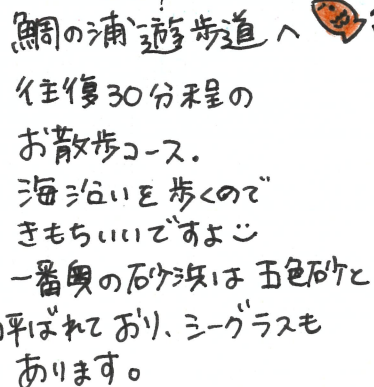 鯛の浦遊歩道へ
往復30分程の
お散歩コース.
海沿いを歩くので
きもちいいですよ
一番奥の砂浜は五色砂と
呼ばれており、シーグラスも
あります。